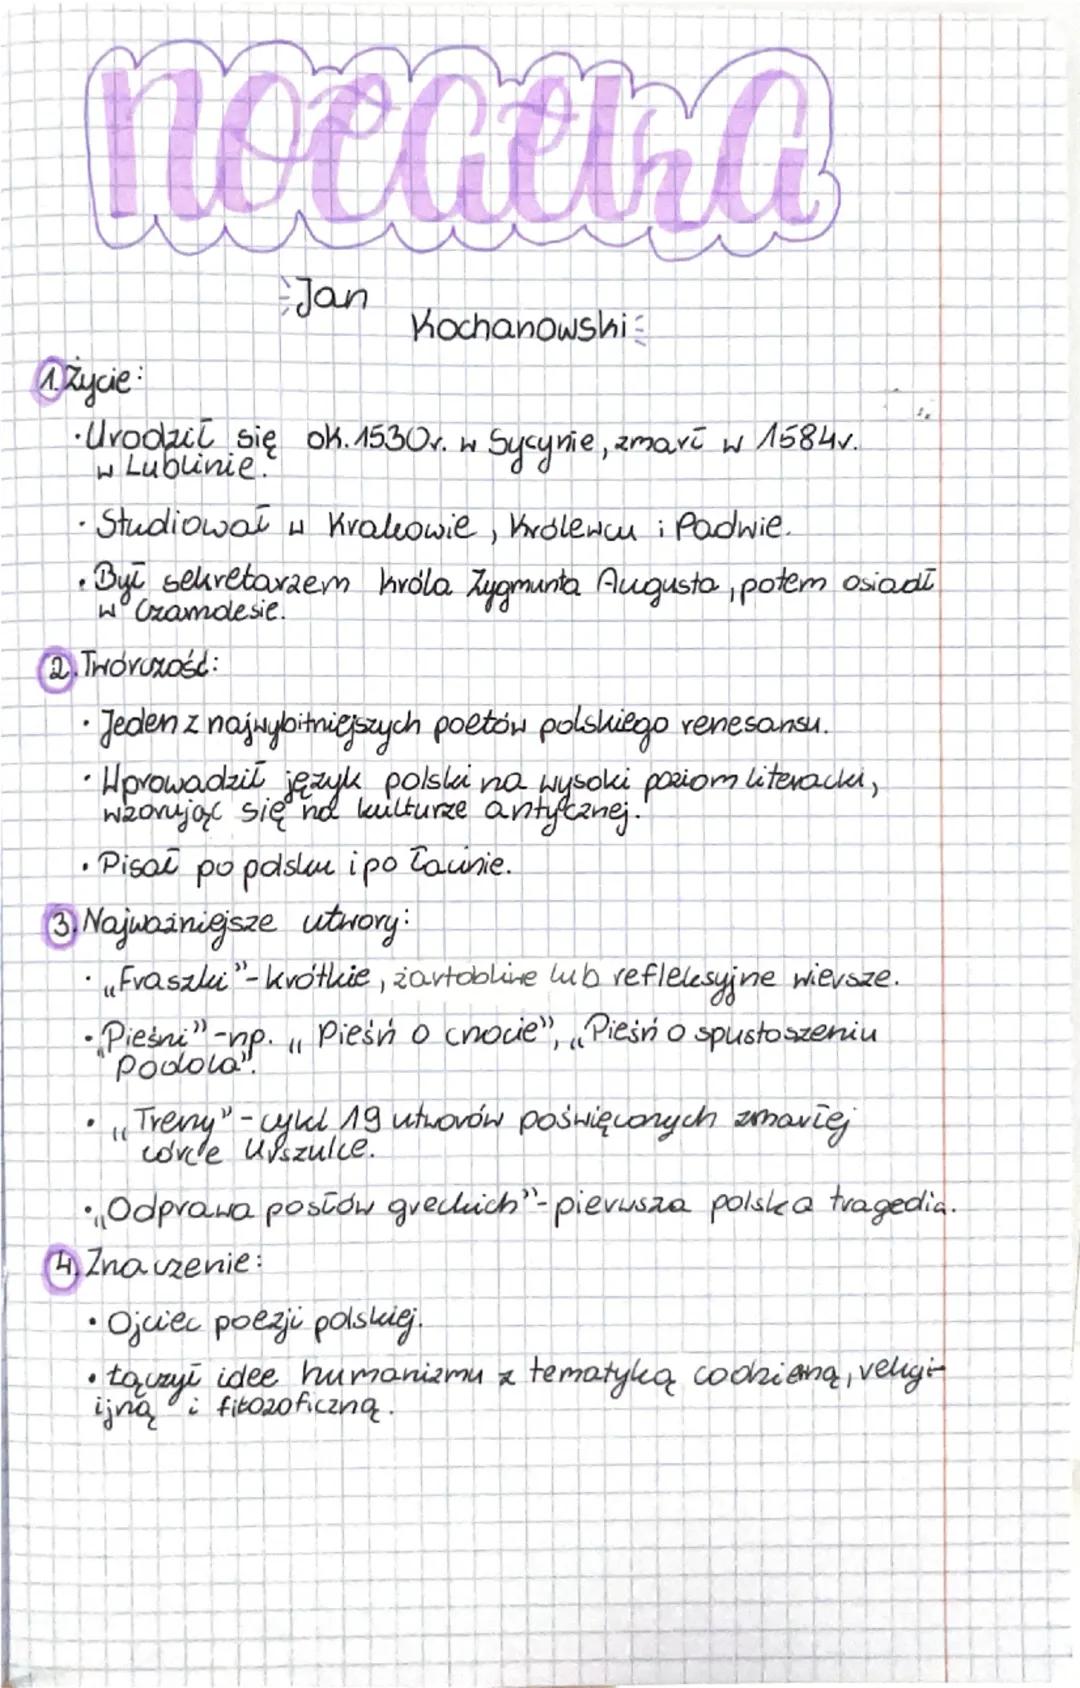 notatka
Jan
Kochanowski
1. Życie:
• Urodził się ok. 1530r. w Sycynie, zmarł w 1584r.
w Lublinie.
• Studiował w Krakowie, Królewcu i Padwie.
• Był sekretarzem króla Zygmunta Augusta, potem osiadł
w Czarnolesie.
2. Twórczość:
• Jeden z najwybitniejszych poetów polskiego renesansu.
• Wprowadził język polski na wysoki poziom literacki,
wzorując się na kulturze antycznej.
• Pisał po polsku i po łacinie.
3. Najważniejsze utwory:
• „Fraszki" - krótkie, żartobliwe lub refleksyjne wiersze.
• „Pieśni" - np. „Pieśń o cnocie", „Pieśń o spustoszeniu
Podola".
• „Treny" - cykl 19 utworów poświęconych zmarłej
córce Urszulce.
• „Odprawa posłów greckich" - pierwsza polska tragedia.
4. Znaczenie:
• Ojciec poezji polskiej.
• Łączył idee humanizmu z tematyką codzienną, religi-
ijną i filozoficzną.